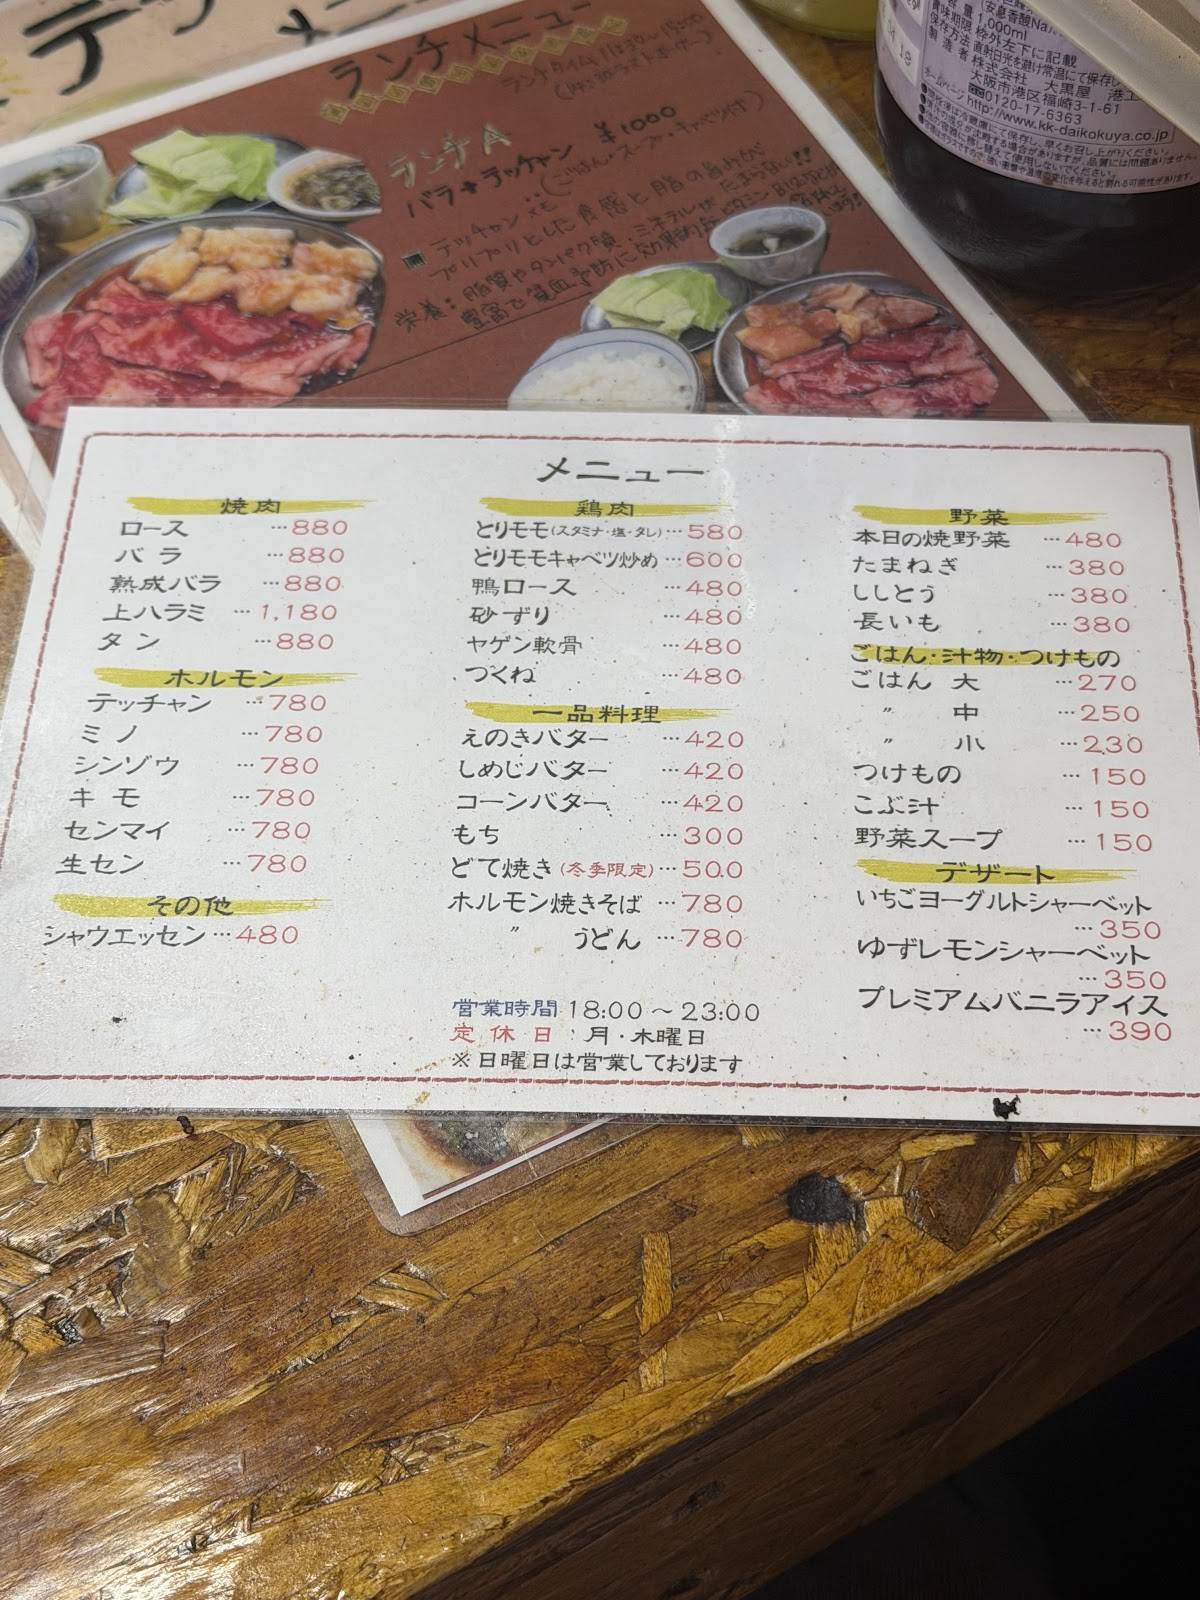 ランチメニュー
ランチA ¥1000
バラ+テッチャン
(ごはん・スープ・キャベツ付)
1,000ml
枠外左下に記載
保存方法 直射日光を避け常温にて保存
製造者 株式会社 大黒屋 港工
大阪市港区福崎3-1-61
0120-17-6363
http://www.kk-daikokuya.co.jp
メニュー
焼肉
ロース …880
バラ …880
熟成バラ …880
上ハラミ …1,180
タン …880
ホルモン
テッチャン …780
ミノ …780
シンゾウ …780
キモ …780
センマイ …780
生セン …780
その他
シャウエッセン…480
鶏肉
とりモモ(スタミナ・塩・タレ)…580
とりモモキャベツ炒め …600
鴨ロース …480
砂ずり …480
ヤゲン軟骨 …480
つくね …480
一品料理
えのきバター …420
しめじバター …420
コーンバター …420
もち …300
どて焼き(冬季限定)…500
ホルモン焼きそば …780
〃 うどん …780
営業時間 18:00〜23:00
定休日:月・木曜日
※日曜日は営業しております
野菜
本日の焼野菜 …480
たまねぎ …380
ししとう …380
長いも …380
ごはん・汁物・つけもの
ごはん 大 …270
〃 中 …250
〃 小 …230
つけもの …150
こぶ汁 …150
野菜スープ …150
デザート
いちごヨーグルトシャーベット
…350
ゆずレモンシャーベット
…350
プレミアムバニラアイス
…390